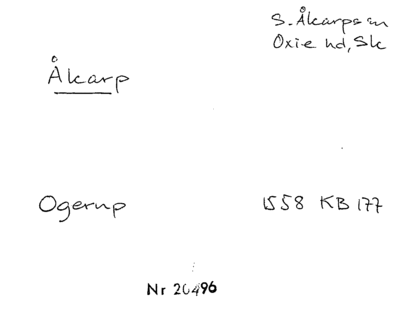 S. Åkarps sn
Oxie hd, Sk
Åkarp
Ogerup 1558 KB 177
Nr 20496